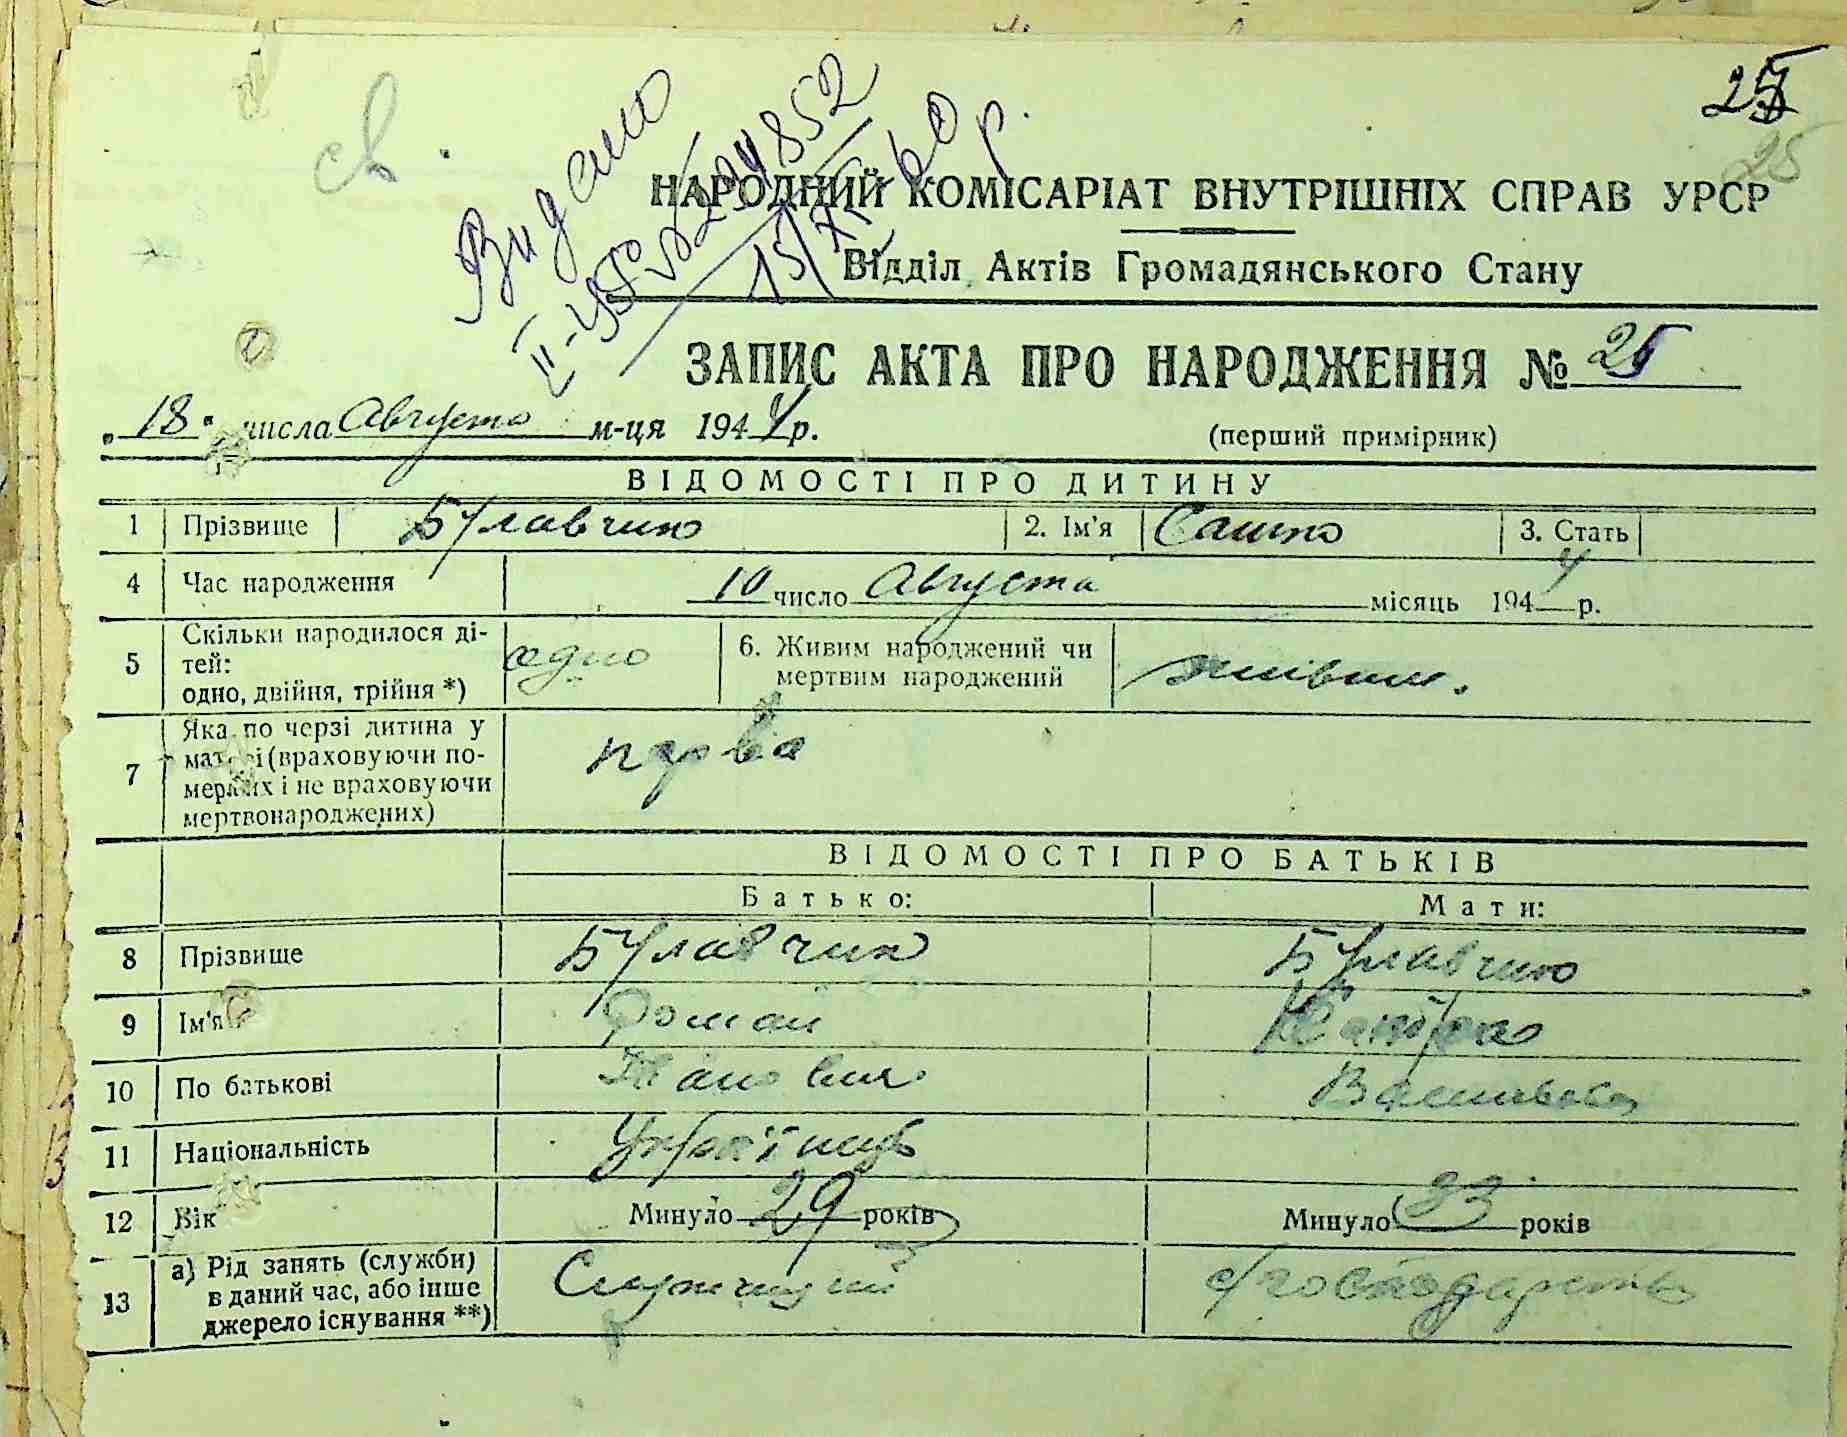 25
25
Видано
15/XI 60 р.
НАРОДНИЙ КОМІСАРІАТ ВНУТРІШНІХ СПРАВ УРСР
Відділ Актів Громадянського Стану
ЗАПИС АКТА ПРО НАРОДЖЕННЯ № 25
„18“ числа Августа м-ця 1944 р. (перший примірник)
ВІДОМОСТІ ПРО ДИТИНУ
1 Прізвище Булавчик 2. Ім'я Сашко 3. Стать
4 Час народження 10 число Августа місяць 1944 р.
5 Скільки народилося ді-
тей:
одно, двійня, трійня *) одно
6. Живим народжений чи
мертвим народжений живим.
7 Яка по черзі дитина у
матері (враховуючи по-
мерлих і не враховуючи
мертвонароджених) перва
ВІДОМОСТІ ПРО БАТЬКІВ
Батько: Мати:
8 Прізвище Булавчик Булавчик
9 Ім'я Роман
10 По батькові
11 Національність Українець
12 Вік Минуло 29 років Минуло 23 років
13 а) Рід занять (служби)
в даний час, або інше
джерело існування **)